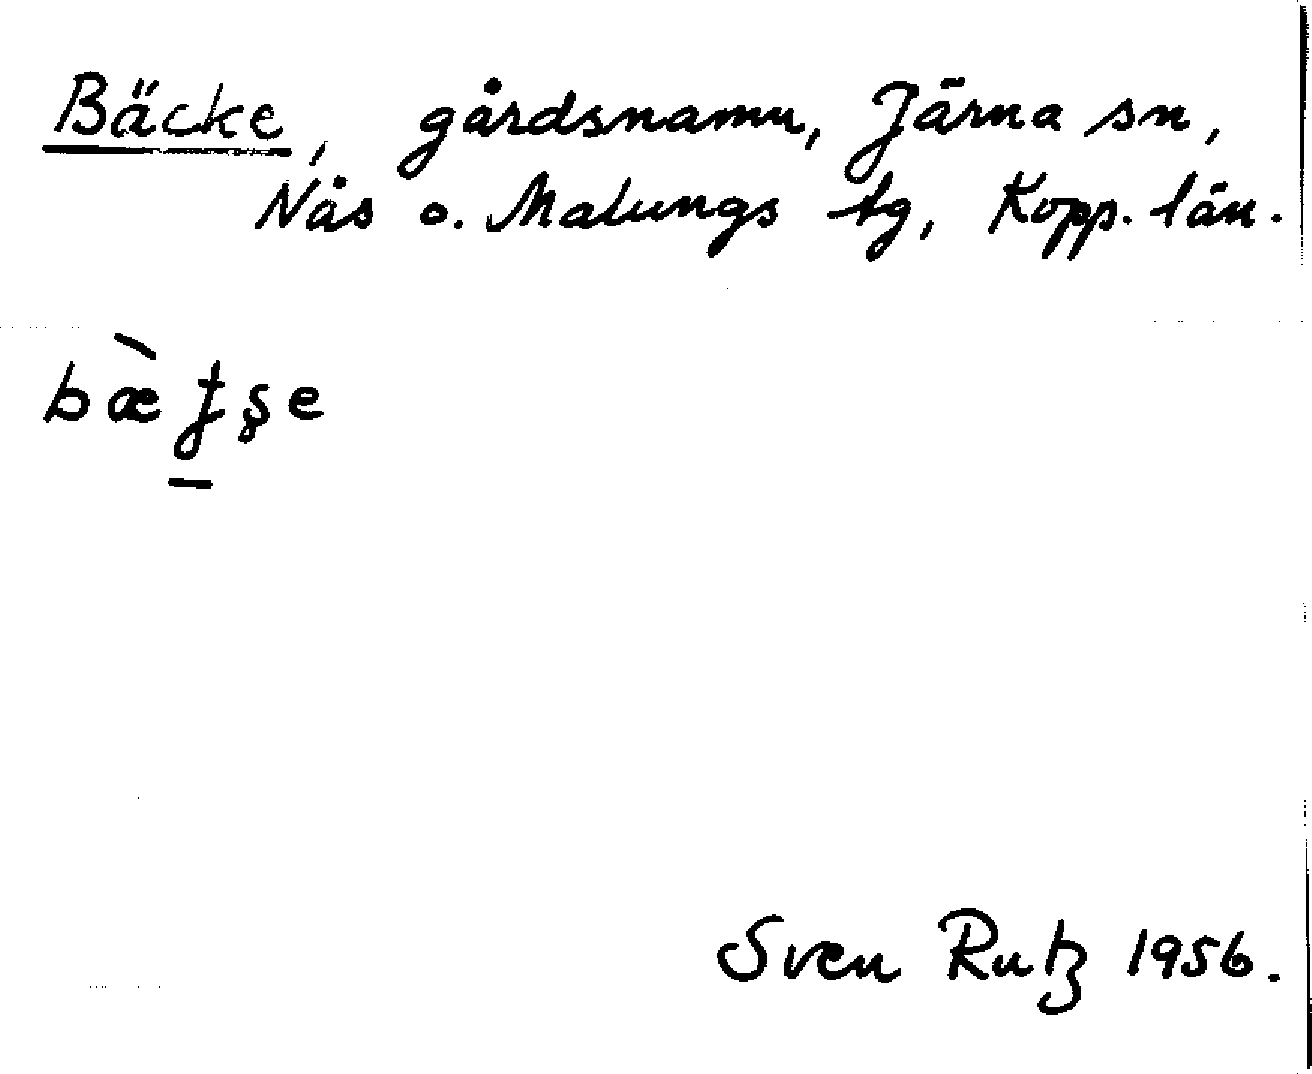 Bäcke, gårdsnamn, Järna sn,
Nås o. Malungs tg, Kopp. län.
bæ̀ʈ̲ʂe
Sven Rutz 1956.